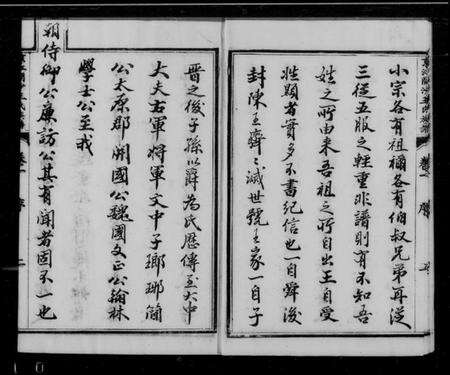 小宗各有祖禰各有伯叔兄弟再從
三從五服之輕重非譜則有不知吾
姓之所由来吾祖之所自出王自受
姓顯者實多不書紀信也一自舜後
封陳王齊齊滅世號王家一自子
晋之後子孫以爵為氏歷傳至大中
大夫右軍將軍文中子瑯琊簡
公太原郡開國公魏國文正公翰林
學士公至我
朝侍御公廉訪公其有聞者固不一也